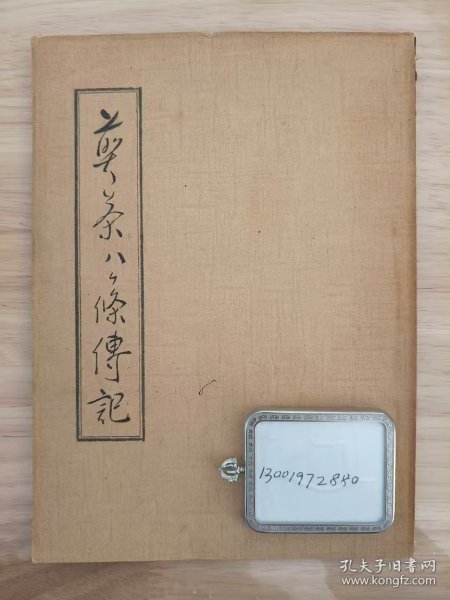 煎茶八ヶ條傳記
13001972840
孔夫子旧书网
www.kongfz.com